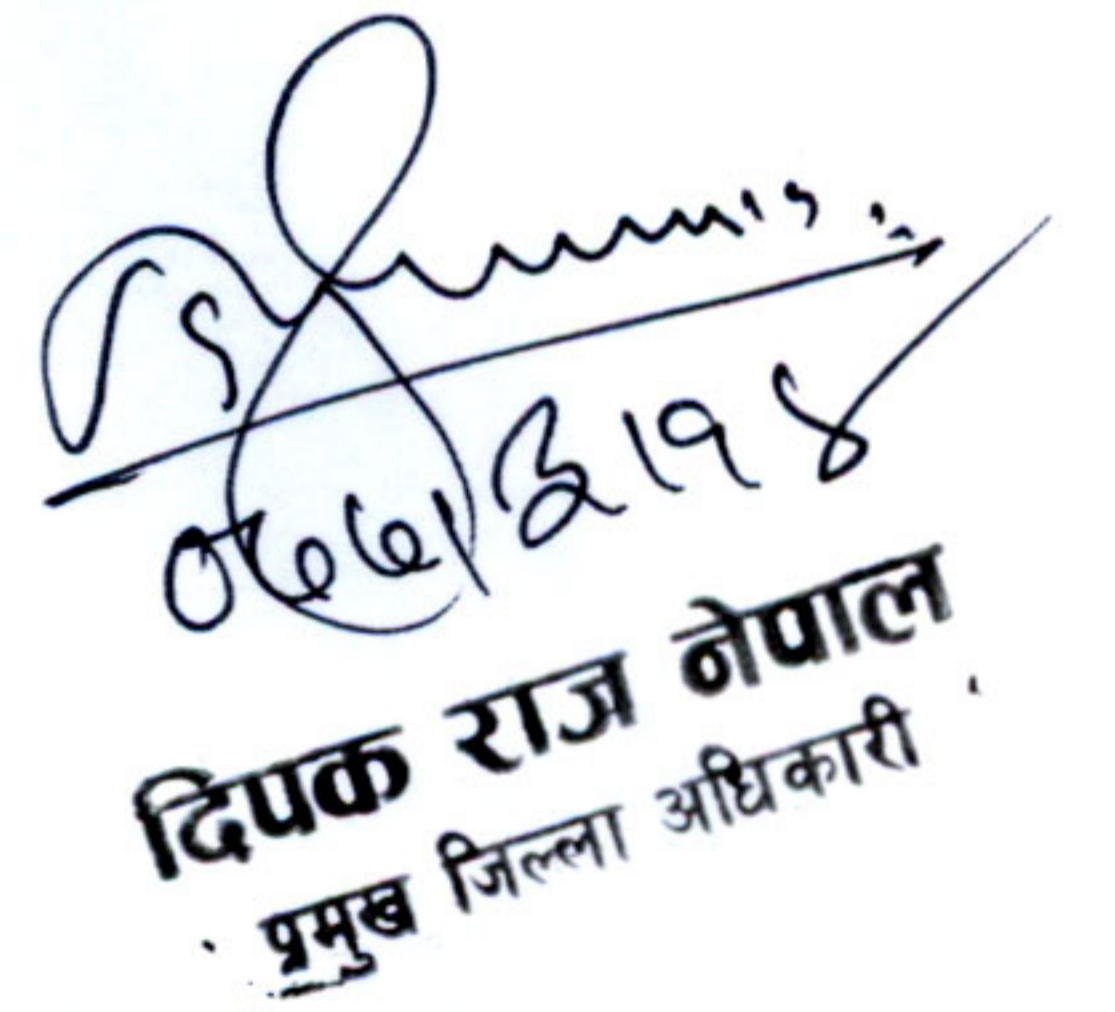 ०७७।३।१४
दिपक राज नेपाल
प्रमुख जिल्ला अधिकारी